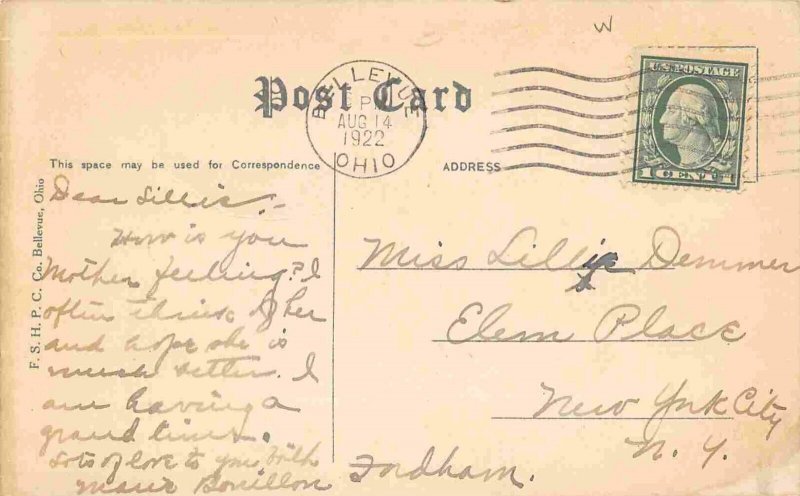 W
Post Card
BELLEVUE
PM
AUG 14
1922
OHIO
U.S. POSTAGE
1 CENT 1
This space may be used for Correspondence
ADDRESS
F. S. H. P. C. Co. Bellevue, Ohio
Dear Lillie:-
How is you
Mother feeling? I
often think of her
and hope she is
much better. I
am having a
grand time.
Lots of love to you both
Marie Bouillon
Miss Lillie Demmer
Elem Place
New York City
N. Y.
Fordham.